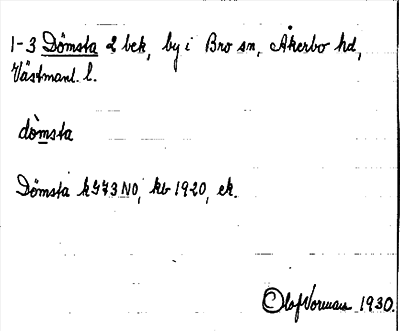 1-3 Dömsta 2 bek, by i Bro sn, Åkerbo hd,
Västmanl. l.
dò̀msta
Dömsta k 573 NO, kb 1920, ek.
Olof Vorman 1930.